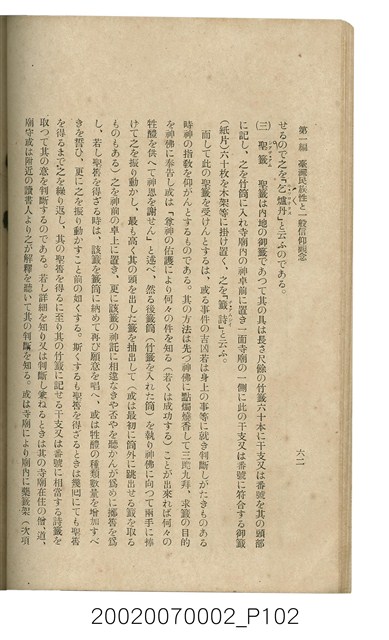 第一編　臺灣民族性と一般信仰觀念
六二
せるので之を「乞爐丹」と云ふのである。
(三)　聖籤　聖籤は內地の御籤であつて其の具は長さ尺餘の竹籤六十本に干支又は番號を其の頭部
に記し、之を竹筒に入れ寺廟內の神卓前に置き一面寺廟の一側に此の干支又は番號に符合する御籤
(紙片)六十枚を木架等に掛け置く、之を「籤詩」と云ふ。
而して此の聖籤を受けんとするは、或る事件の吉凶若は身上の事等に就き判斷しがたきものある
時神の指敎を仰がんとするものである。其の方法は先つ神佛に點燭燒香して三跪九拜、求籤の目的
を神佛に奉告し或は「尊神の佑護により何々の件を知る(若くは成功する)ことが出來れば何々の
牲醴を供へて神恩を謝せん」と述べ、然る後籤筒(竹籤を入れた筒)を執り神佛に向つて兩手に捧
けて之を振り動かし、最も高く其の頭を出した籤を抽出して(或は最初に筒外に跳出せる籤を取る
ものもある)之を神前の卓上に置き、更に該籤の神託に相違なきや否やを聽かんが爲めに擲筶を爲
し、若し聖筶を得ざる時は、該籤を籤筒に納めて再び願意を唱へ、或は牲醴の種類數量を增加すべ
きを誓ひ、更に之を振り動かすこと前の如くする。斯くするも聖筶を得ざるときは幾囘にても聖筶
を得るまで之を繰り返し、其の聖筶を得るに至り其の竹籤に記せる干支又は番號に相當する詩籤を
取つて其の意を判斷するのである。若し詳細を知り又は判斷し兼ねるときは其の寺廟在住の僧、道、
廟守或は附近の讀書人より之が解釋を聽いて其の判斷を知る。或は寺廟により廟內に藥籤架(次項
20020070002_P102